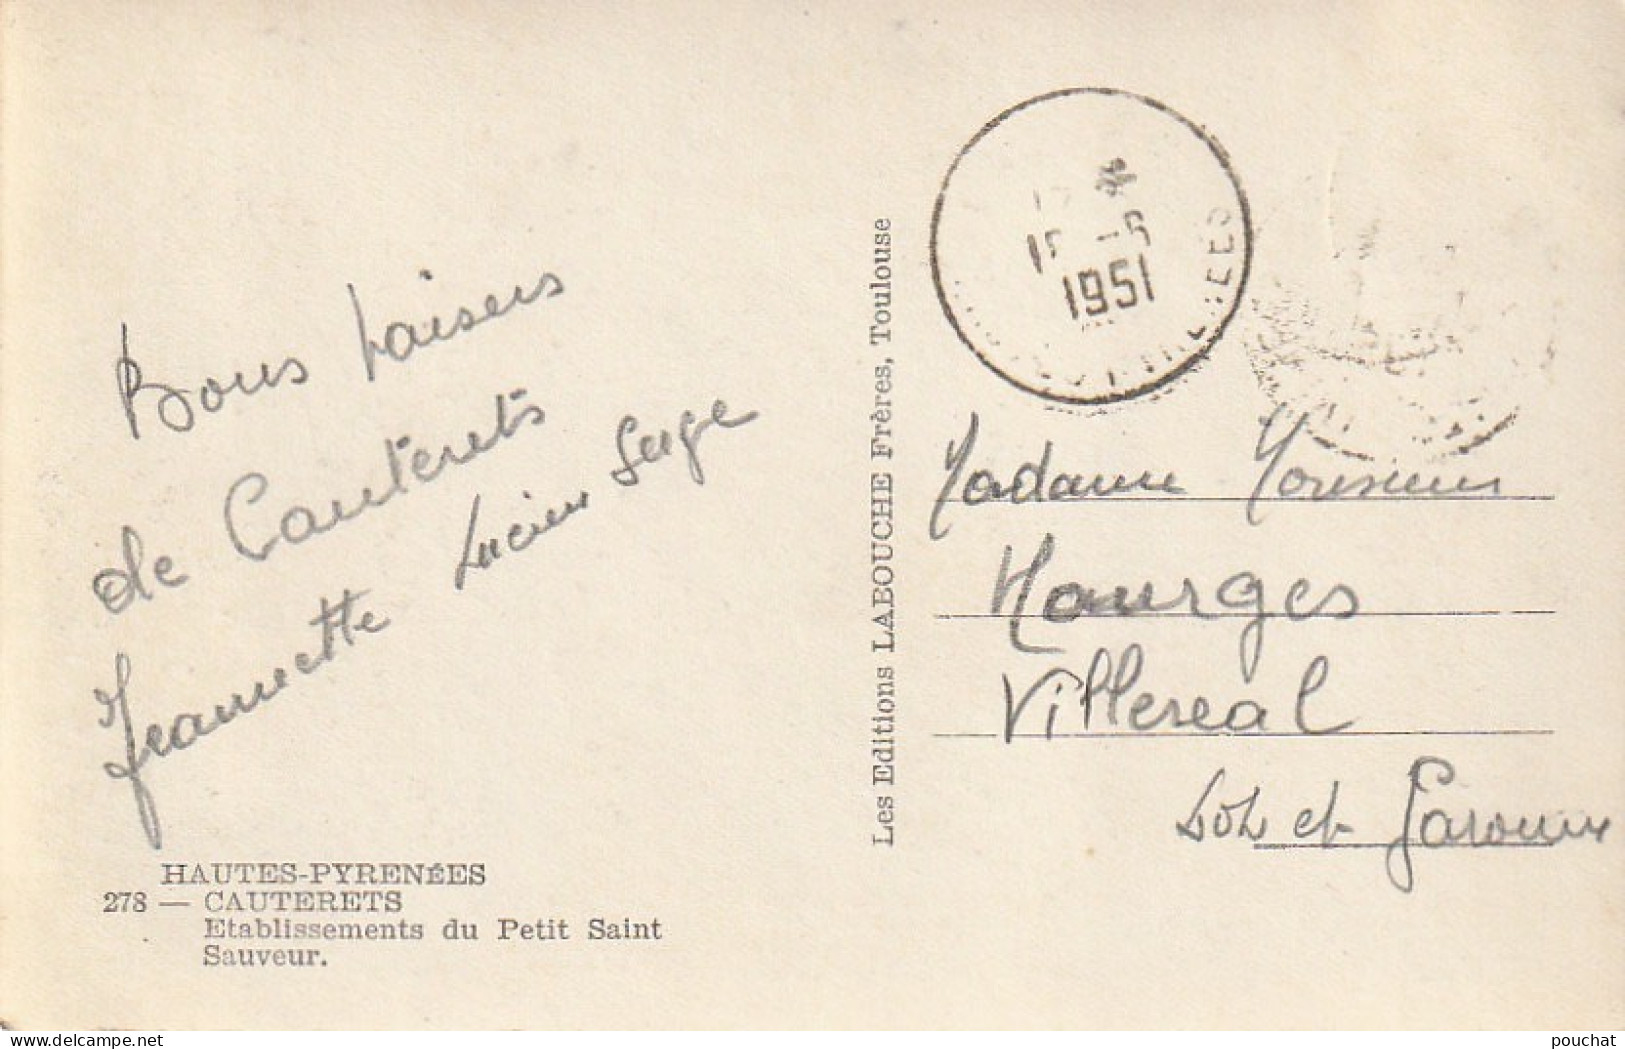 Bons baisers
de Cauterets
Jeannette Lucien Serge
HAUTES-PYRENÉES
278 — CAUTERETS
Etablissements du Petit Saint
Sauveur.
Les Editions LABOUCHE Frères, Toulouse
1951
Madame Monsieur
Hourges
Villereal
Lot et Garonne
pouchat